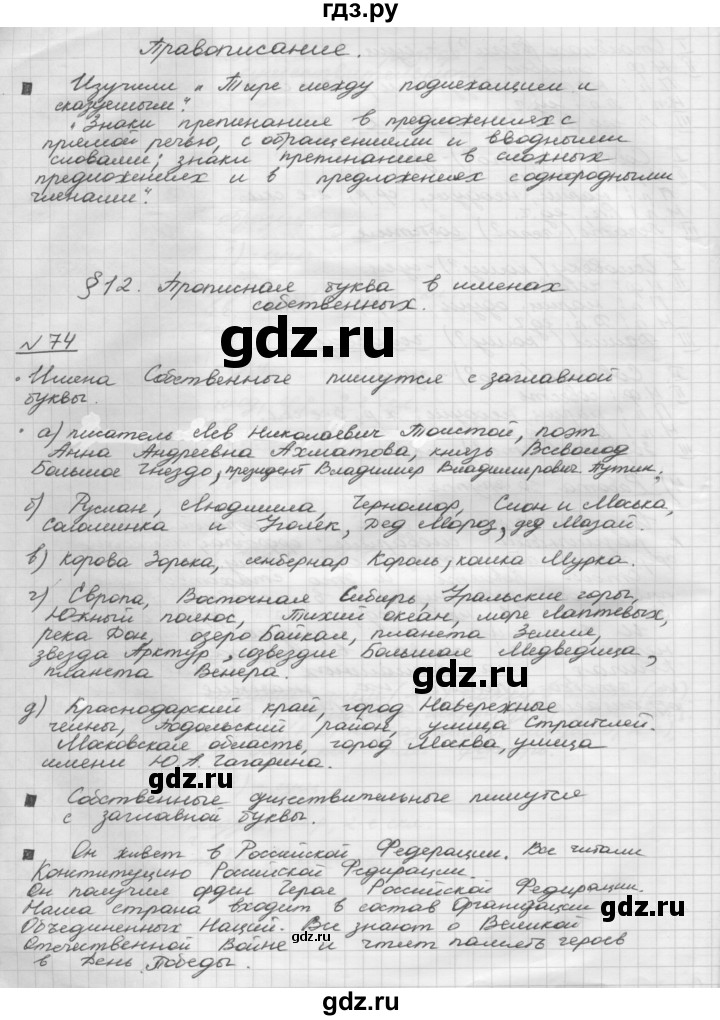 гдз.ру
Правописание.
Изучили „ Тире между подлежащим и
сказуемым".
„Знаки препинания в предложениях с
прямой речью, с обращениями и вводными
словами; знаки препинания в сложных
предложениях и в предложениях с однородными
членами".
§12. Прописная буква в именах
собственных.
gdz.ru
№74
• Имена Собственные пишутся с заглавной
буквы.
• а) писатель Лев Николаевич Толстой, поэт
Анна Андреевна Ахматова, князь Всеволод
Большое Гнездо, президент Владимир Владимирович Путин;
б) Руслан, Людмила, Черномор, Слон и Моська,
Соломинка и Уголек, Дед Мороз, дед Мазай.
в) корова Зорька, сенбернар Король, кошка Мурка.
г) Европа, Восточная Сибирь, Уральские горы,
Южный полюс, Тихий океан, море Лаптевых,
река Дон, озеро Байкал, планета Земля,
звезда Арктур, созвездие Большая Медведица,
планета Венера.
gdz.ru
д) Краснодарский край, город Набережные
челны, Подольский район, улица Строителей.
Московская область, город Москва, улица
имени Ю.А. Гагарина.
gdz.ru
Собственные существительные пишутся
с заглавной буквы.
Он живет в Российской Федерации. Все читали
Конституцию Российской Федирации.
Он получил орден Героя Российской Федирации.
Наша страна входит в состав Организации
gdz.ru
Объединенных Наций. Все знают о Великой
Отечественной Войне и чтят память героев
в День Победы.
gdz.ru
gdz.ru